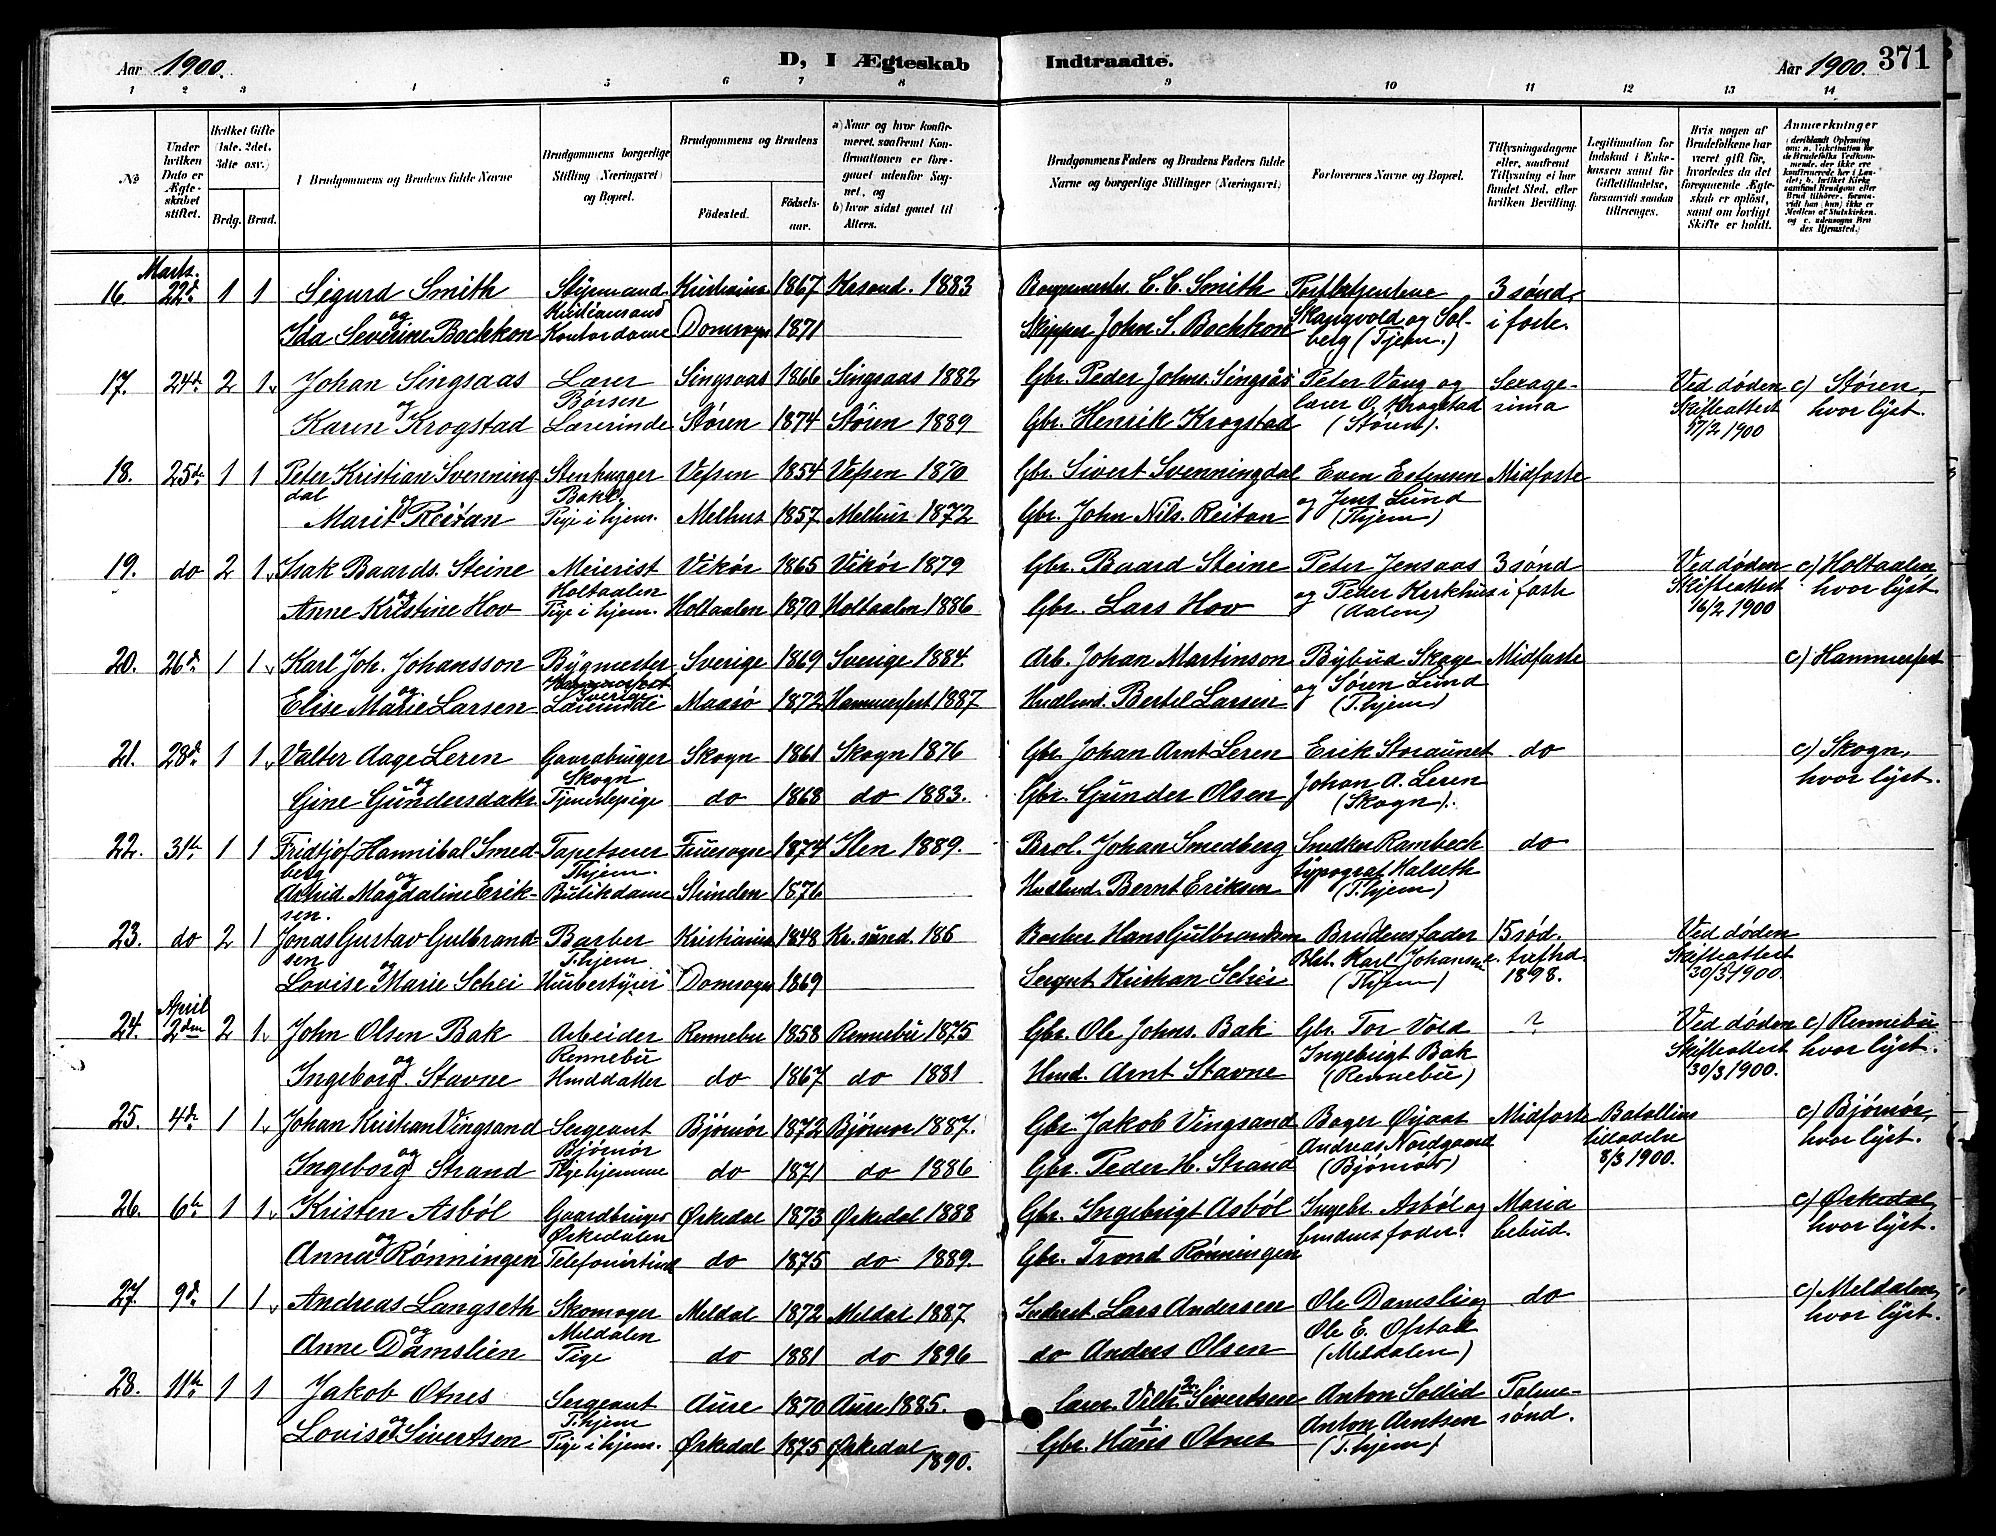 Aar 1900.
D, I Ægteskab Indtraadte.
Aar 1900. 371
1 2 3 4 5 6 7 8 9 10 11 12 13 14
No
Under hvilken Dato er Ægteskabet stiftet.
Hvilket Gifte (1ste, 2det, 3die osv.)
Brdg. Brud.
Brudgommens og Brudens fulde Navne
Brudgommens borgerlige Stilling (Næringsvei) og Bopæl.
Brudgommens og Brudens
Fødested. Fødsels-aar.
a) Naar og hvor konfirmeret, saafremt Konfirmationen er foregaaet udenfor Sognet, og
b) hvor sidst gaaet til Alters.
Brudgommens Faders og Brudens Faders fulde Navne og borgerlige Stillinger (Næringsvei)
Forlovernes Navne og Bopæl.
Tillysningsdagene eller, saafremt Tillysning ei har fundet Sted, efter hvilken Bevilling.
Legitimation for Indskud i Enkekassen samt for Giftetilladelse, forsaavidt saadan tiltrænges.
Hvis nogen af Brudefolkene har været gift før, hvorledes da det foregaaende Ægteskab er opløst, samt om lovligt Skifte er holdt.
Anmærkninger
Marts.
16. 22d 1 1 Sigurd Smith Styrmand Kristiansand Kristiania 1867 Krsand. 1883 C. C. Smith Postbetjentene 3 sønd.
og Ida Severine Bochkon Kontordame Domsogn 1871 Skipper John S. Bochkon Skangvold og Solberg (Tjem.) i faste.
17. 24de 2 1 Johan Singsaas Lærer Børsen Singsaas 1866 Singsaas 1882 Gbr. Peder Johns. Singsås Peter Vang og Sexage- Ved døden c) Støren,
og Karen Krogstad Lærerinde Støren 1874 Støren 1889 Gbr. Henrik Krogstad lærer O. Krogstad (Støren). sima Skifteattest 17/2 1900 hvor lyst.
18. 25de 1 1 Peter Kristian Svenningdal Stenhugger Bakl. Vefsen 1854 Vefsen 1870 Gbr. Sivert Svenningdal Even Estensen Midfaste
og Marit Reitan Pige i hjem. Melhus 1857 Melhus 1872 Gbr. John Nils. Reitan og Jens Lund (Thjem)
19. do 2 1 Isak Baards. Steine Meierist Holtaalen Vikør 1865 Vikør 1879 Gbr. Baard Steine Peter Jensaas 3 sønd Ved døden c) Holtaalen
og Anne Kristine Hov Pige i hjem. Holtaalen 1870 Holtaalen 1886 Gbr. Lars Hov og Peder Kirkhus (Aalen) i faste Skifteattest 16/2 1900 hvor lyst
20. 26de 1 1 Karl Joh. Johansson Bygmester Sverige Sverige 1869 Sverige 1884. Arb. Johan Martinson Bybud Skage Midfaste c) Hammerfest
og Elise Marie Larsen Lærerinde Maasø 1872 Hammerfest 1887 Hudlmd. Bertel Larsen og Søren Lund (T.hjem)
21. 28de 1 1 Valter Aage Leren Gaardbruger Skogn Skogn 1861 Skogn 1876 Gbr. Johan Arnt Leren Erik Storaunet do c) Skogn,
og Gine Gundersdatr. Tjenestepige do 1868 do 1883. Gbr. Gunder Olsen Johan A. Leren (Skogn). hvor lyst.
22. 31te 1 1 Fridtjof Hannibal Smedberg Tapetserer Thjem. 1874 Ilen 1889. Johan Smedberg Snedker Rambech do
og Astrid Magdaline Eriksen. Butikdame Strinden 1876 Bernt Eriksen typograf Halseth (T.hjem)
23. do 2 1 Jonas Gustav Gulbrandsen Barber T.hjem Kristiania 1848 Kr. sund. 186 Barber Hans Gulbrandsen Brudens fader 15 sød. Ved døden
og Lovise Marie Schei Domsogn 1869 Sergnt Kristian Schei Karl Johansen (T.hjem) e. trefhd. 1898. Skifteattest 30/3 1900.
April
24. 2den 2 1 John Olsen Bak Arbeider Rennebu Rennebu 1858 Rennebu 1875 Gbr. Ole Johns. Bak Gbr. Tor Vold ? Ved døden c) Rennebu
og Ingeborg Stavne Husdatter do 1867 do 1881 Husmd. Arnt Stavne Ingebrigt Bak (Rennebu) Skifteattest 30/3 1900. hvor lyst.
25. 4de 1 1 Johan Kristian Vingsand Sergeant Bjørnør Bjørnør 1872 Bjørnør 1887. Gbr Jakob Vingsand Midfaste 8/3 1900. c) Bjørnør,
og Ingeborg Strand Pige hjemme do 1871 do 1886 Gbr. Peder H. Strand Andreas Nordgaard (Bjørnør) hvor lyst.
26. 6te 1 1 Kristen Asbøl Gaardbruger Ørkedalen Ørkedal 1873 Ørkedal 1888 Gbr. Ingebrigt Asbøl Ingebr Asbøl og Maria c) Ørkedal,
og Anna Rønningen Telefonistinde do 1875 do 1889. Gbr. Trond Rønningen brudens fader. bebud. hvor lyst.
27. 9de 1 1 Andreas Langseth Skomager Meldalen Meldal 1872 Meldal 1887 Inderst Lars Andersen Ole Damsli og do c) Meldalen,
og Anne Damslien Pige do 1881 do 1896 do Anders Olsen Ole E. Ofstad (Meldalen) hvor lyst.
28. 11te 1 1 Jakob Otnes Sergeant T.hjem Aure 1870 Aure 1885. 2 Vilh. Sivertsen Anton Sollid Palme-
og Lovise Sivertsen Pige i hjem. Ørkedal 1875 Ørkedal 1890. 1 Gbr. Hans Otnes Anton Arntsen (T.hjem) sønd.